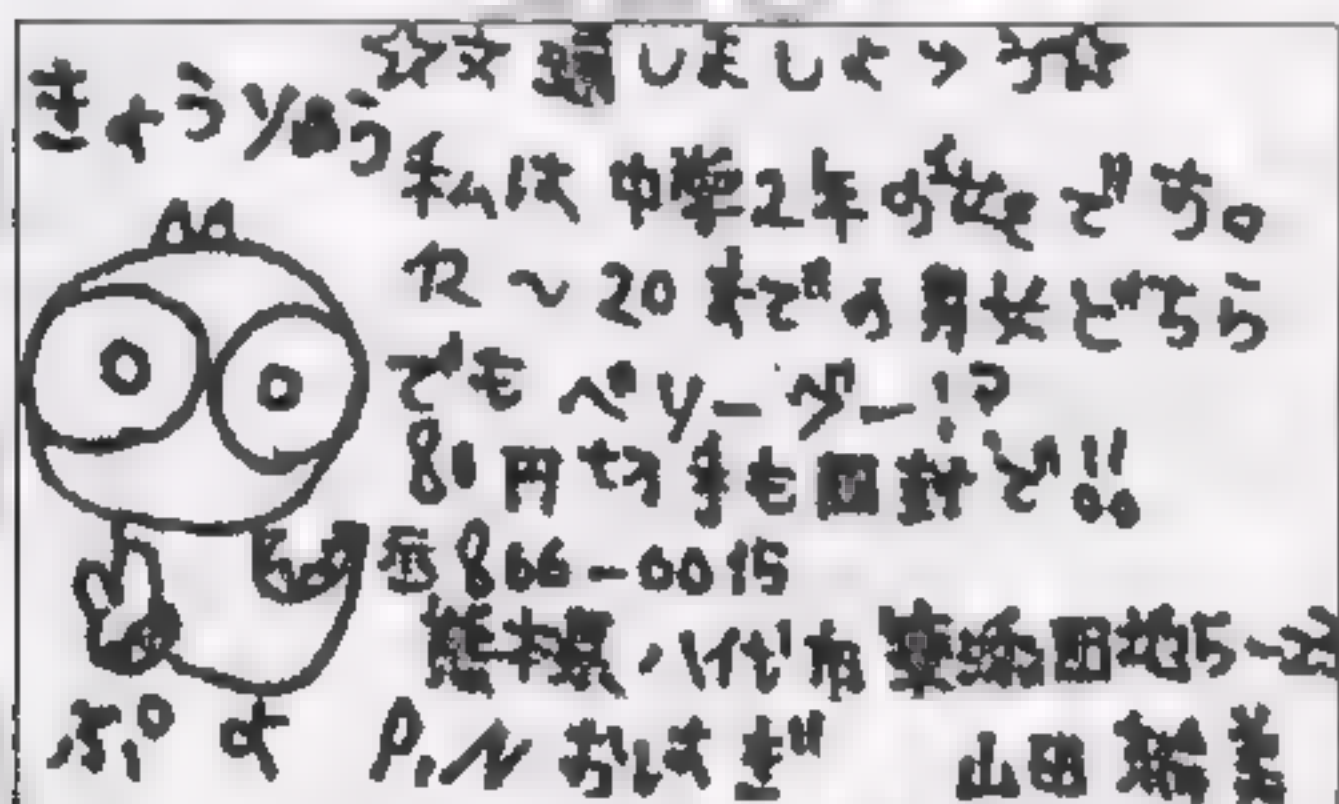 ☆文通しましょう☆
きょうりゅう
私は中学2年の女です。
12〜20までの男女どちら
でも ベリーグー!?
80円切手も同封で!!
866-0015
熊本県 八代市 団地5-
P.N おしはぎ 山田
ぷよ